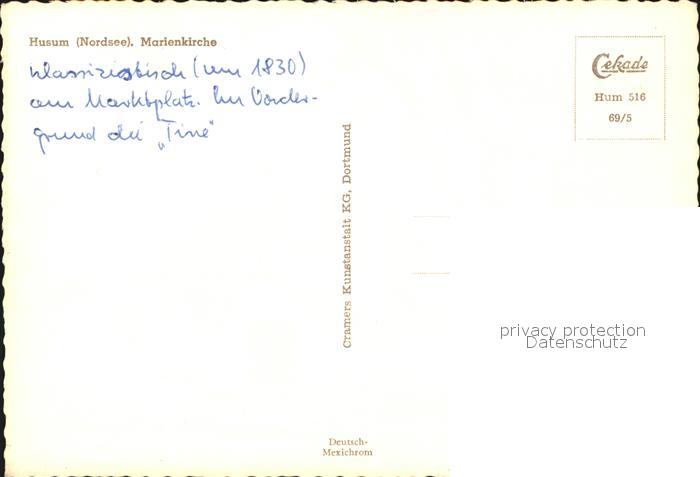 Husum (Nordsee). Marienkirche
klassizistisch (um 1830)
am Marktplatz. Im Vorder-
grund die „Tine"
Cekade
Hum 516
69/5
Cramers Kunstanstalt KG, Dortmund
privacy protection
Datenschutz
Deutsch-
Mexichrom